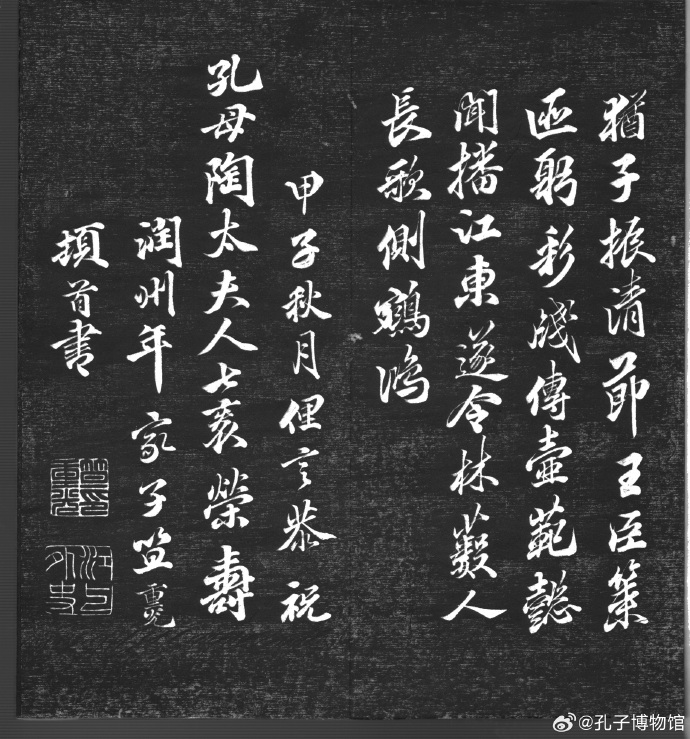 猶子振清節王臣篤
匪躬彩牋傳壼範懿
聞播江東遂令林藪人
長歌側鵷鴻
甲子秋月俚言恭祝
孔母陶太夫人七袠榮壽
润州年家子笪重光
頓首書
笪印重光
江上外史
@孔子博物馆